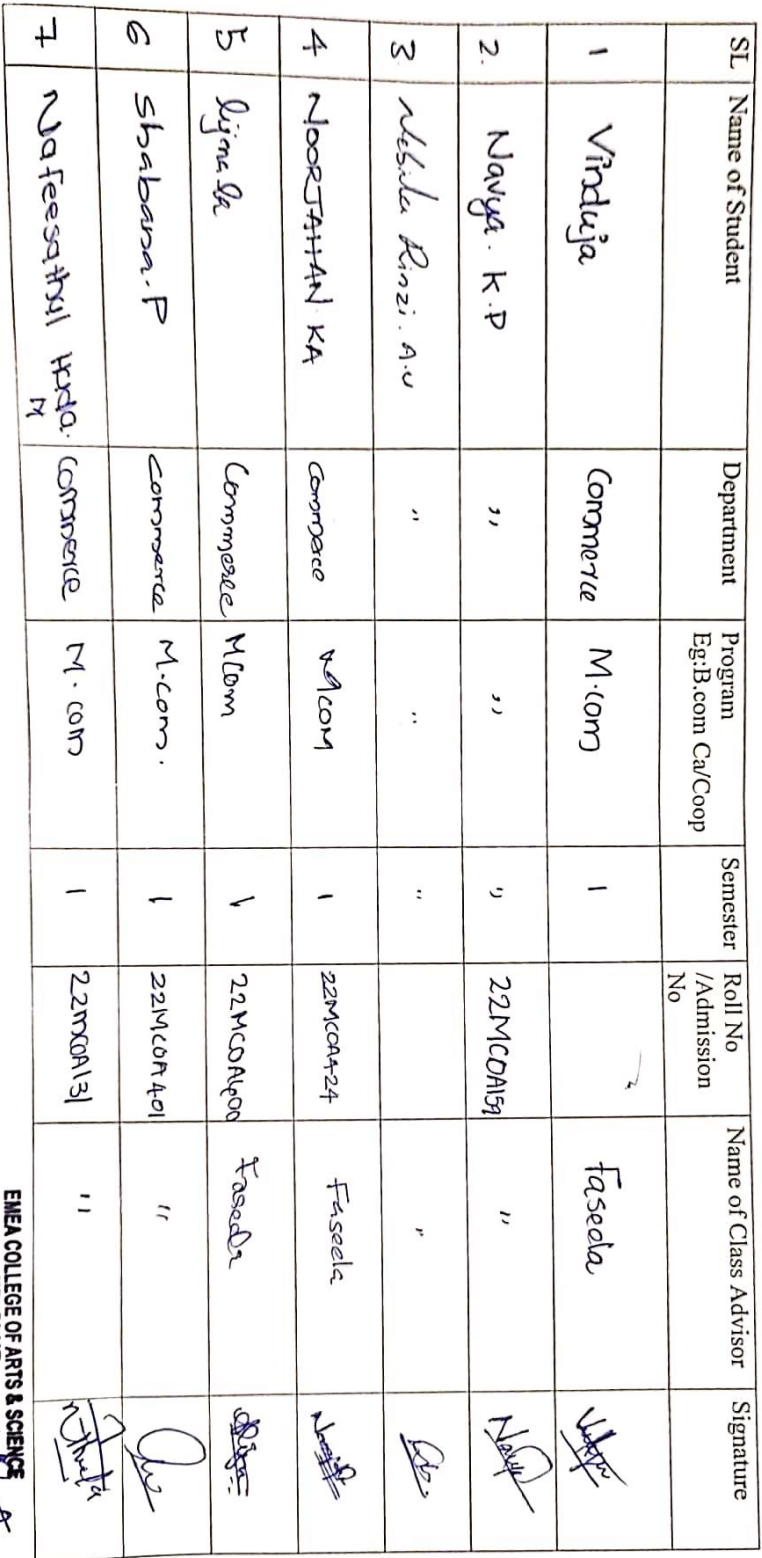 SL Name of Student Department Program Eg:B.com Ca/Coop Semester Roll No /Admission No Name of Class Advisor Signature
1 Vinduja Commerce M.com 1 Faseela
2. Navya. K.P ,, ,, ,, 22MCOA159 ,,
3. Rinzi. A.U " " " "
4 NOORJAHAN KA Commerce MCOM 1 22MCOA424 Faseela
5 Commerce MCom 1 22MCOA400 Faseela
6 Shabana.P Commerce M.com. 1 22MCOA401 "
7 Nafeesathul Huda. M Commerce M.com 1 22MCOA131 "
EMEA COLLEGE OF ARTS & SCIENCE